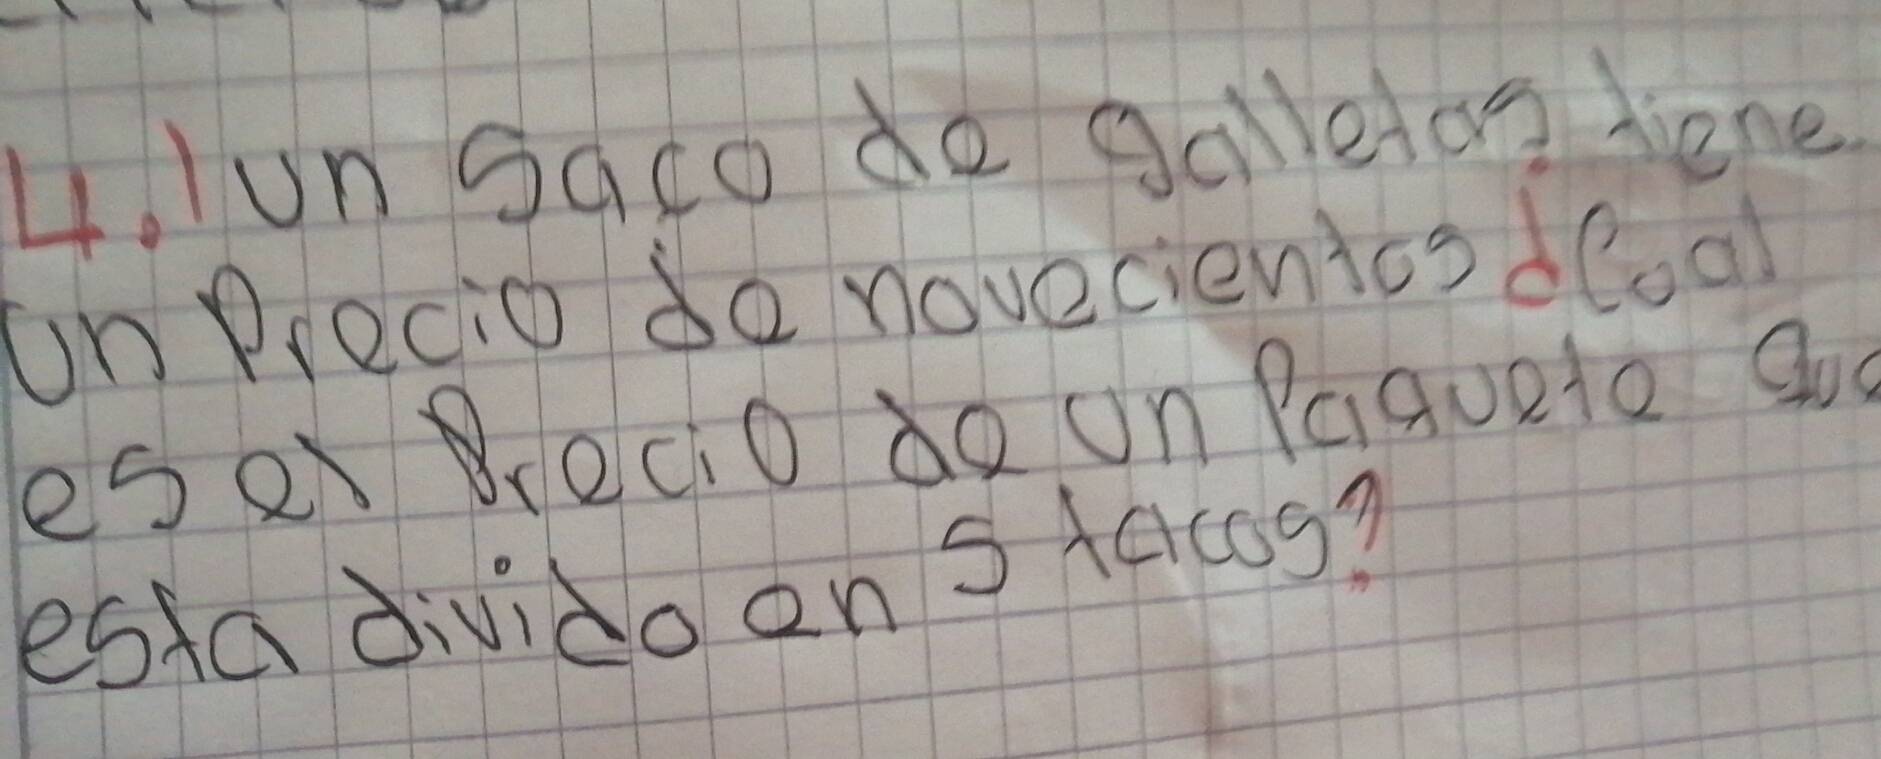 4.) un saco de galletas tiene
un Precio de novecientos ¿Coal
es el Precio de un Paquete que
esta divido en 5 tacos?